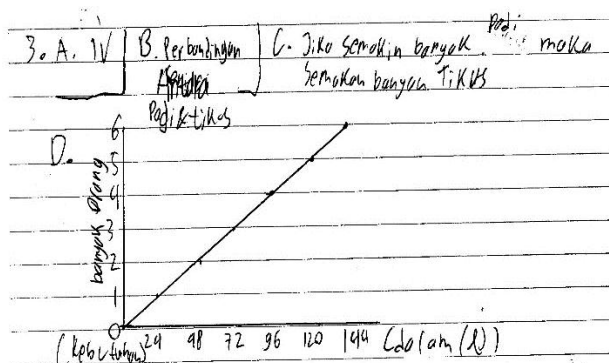 3. A. IV | B. Perbandingan Padi & tikus | C. Jika semakin banyak Padi maka semakan banyan TikUS
D.
banyak Orang
6
5
4
3
2
1
0
(Kebutuhan) 24 48 72 96 120 144 (dalam (l))